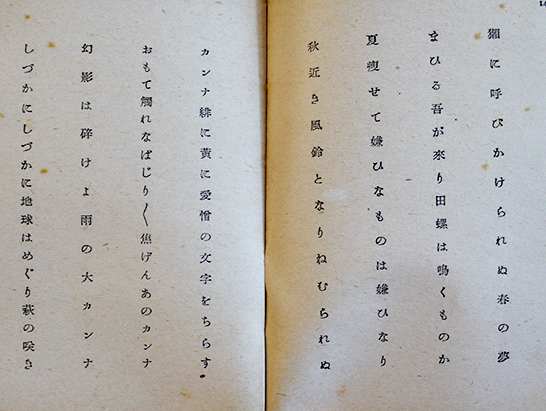 獺に呼びかけられぬ春の夢
まひる吾が來り田螺は鳴くものか
夏痩せて嫌ひなものは嫌ひなり
秋近き風鈴となりねむられぬ
カンナ緋に黄に愛憎の文字をちらす
おもて觸れなばじり〱焦げんあのカンナ
幻影は碎けよ雨の大カンナ
しづかにしづかに地球はめぐり萩の咲き